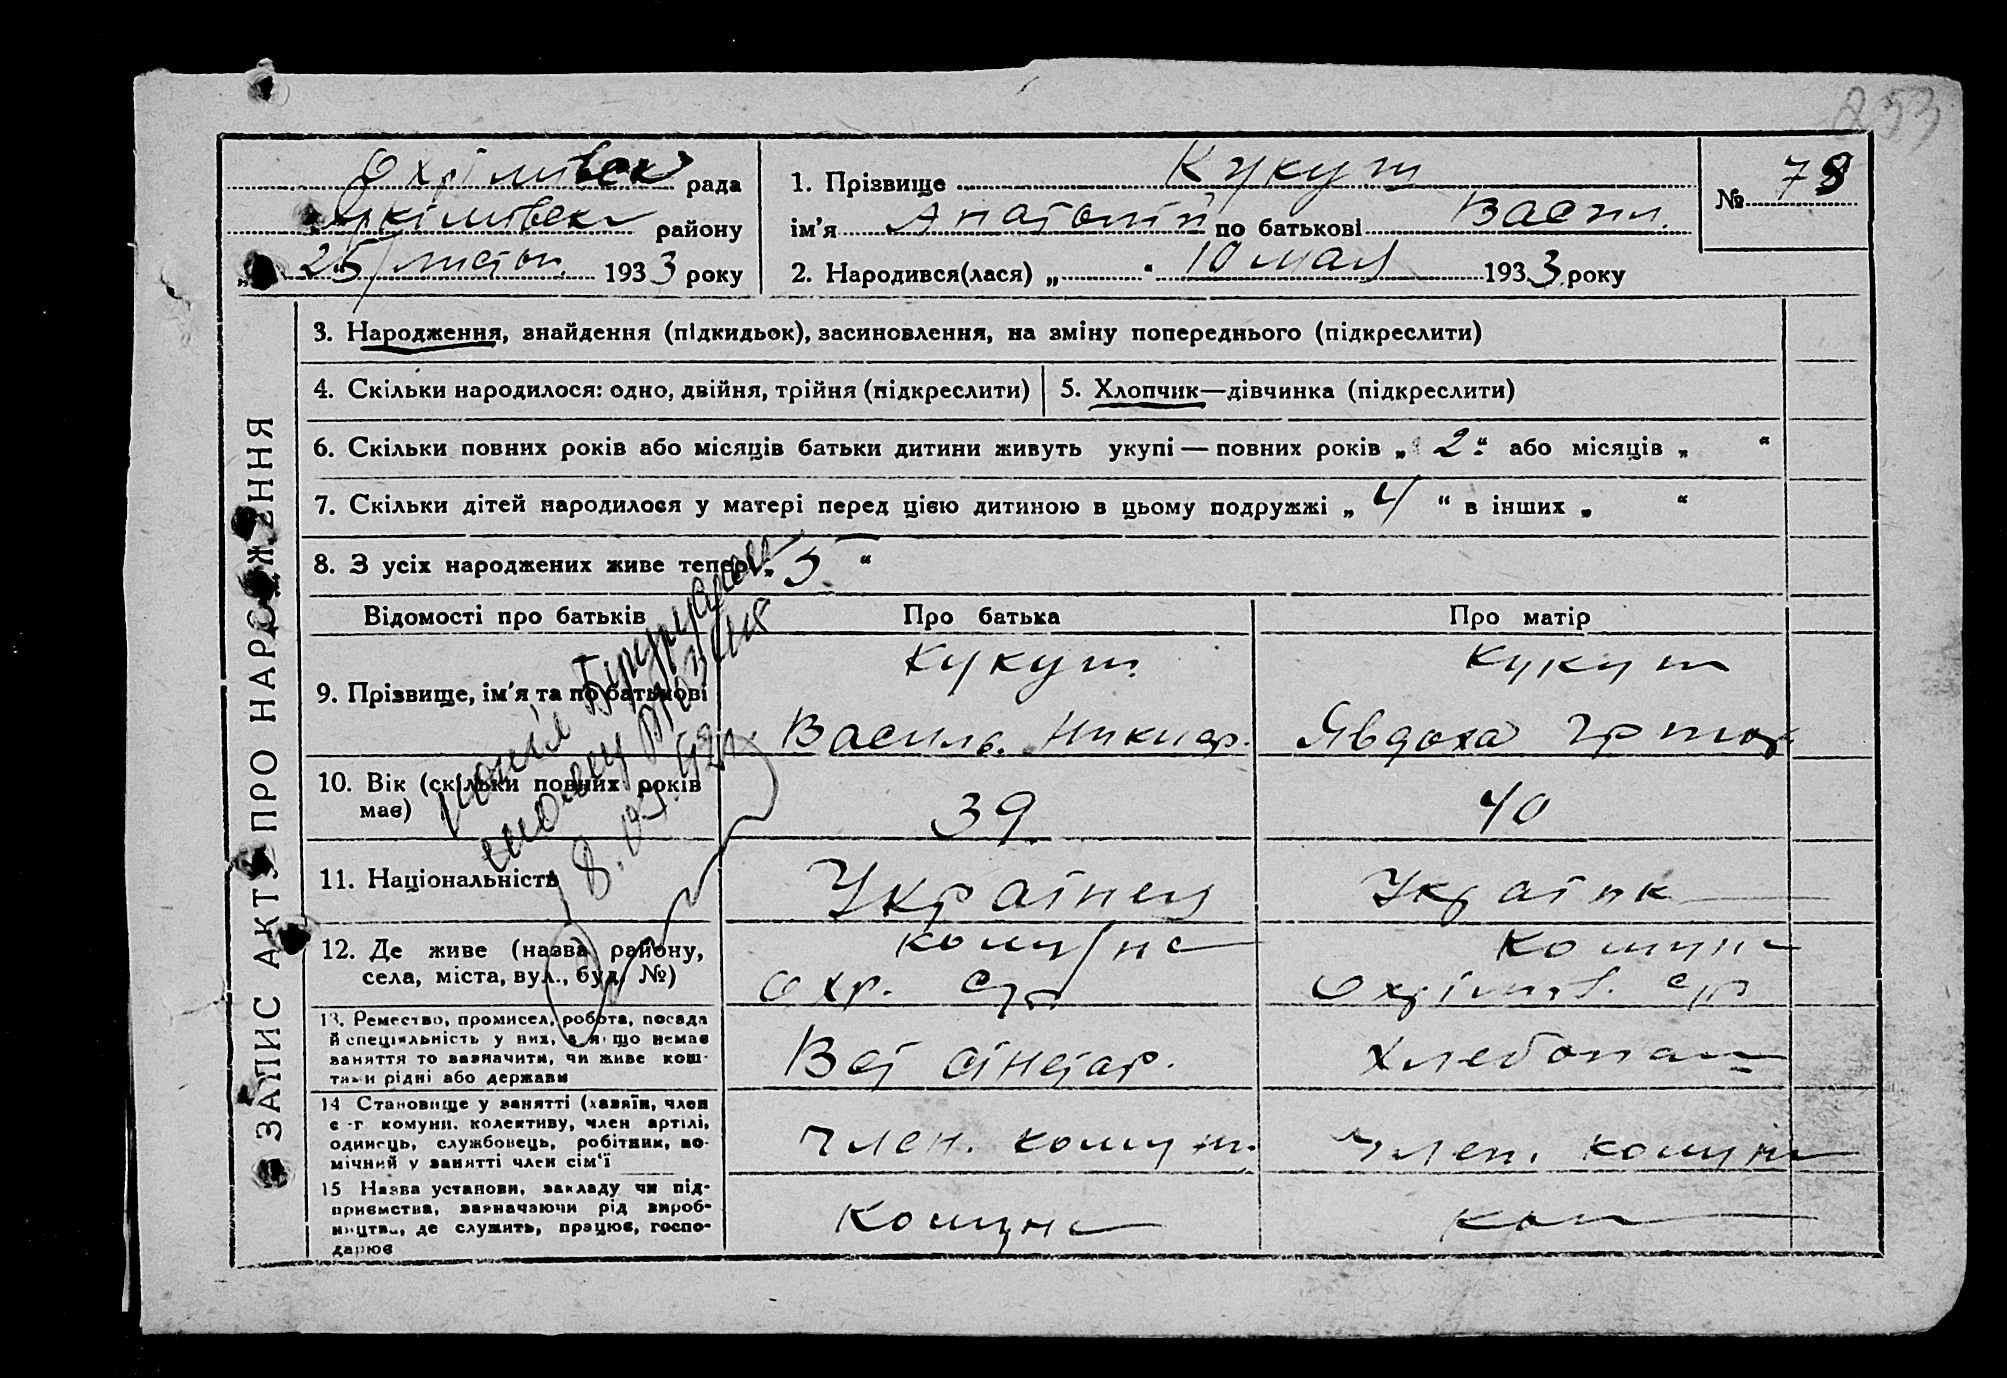 253
Охрімівськ рада
Якимівськ району
„ 25 листоп. 1933 року
1. Прізвище Кукуш
ім'я Анатолій по батькові Васил.
2. Народився(лася) „ “ 10 мая 1933 року
№ 78
ЗАПИС АКТУ ПРО НАРОДЖЕННЯ
3. Народження, знайдення (підкидьок), засиновлення, на зміну попереднього (підкреслити)
4. Скільки народилося: одно, двійня, трійня (підкреслити) 5. Хлопчик—дівчинка (підкреслити)
6. Скільки повних років або місяців батьки дитини живуть укупі — повних років „ 2 “ або місяців „ “
7. Скільки дітей народилося у матері перед цією дитиною в цьому подружжі „ 4 “ в інших „ “
8. З усіх народжених живе тепер „ 5 “
Відомості про батьків Про батька Про матір
9. Прізвище, ім'я та по батькові
Кукуш
Василь. Никиф.
Кукуш
Явдоха Григор
10. Вік (скільки повних років
має)
39
40
11. Національність
Українец
Українк
12. Де живе (назва району,
села, міста, вул., буд. №)
комуна
Охр. с/р
комуна
Охрімів. с/р
13. Ремество, промисел, робота, посада
й спеціяльність у них, а якщо немає
заняття то зазначити, чи живе кош-
тами рідні або держави
Вет санітар.
Хлебопаш
14 Становище у занятті (хазяїн, член
с-г комуни, колективу, член артілі,
одинець, службовець, робітник, по-
мічний у занятті член сім'ї
член. комун.
член. комун
15 Назва установи, закладу чи під-
приємства, зазначаючи рід вироб-
ництва, де служить, працює, госпо-
дарює
Комуна
Ком